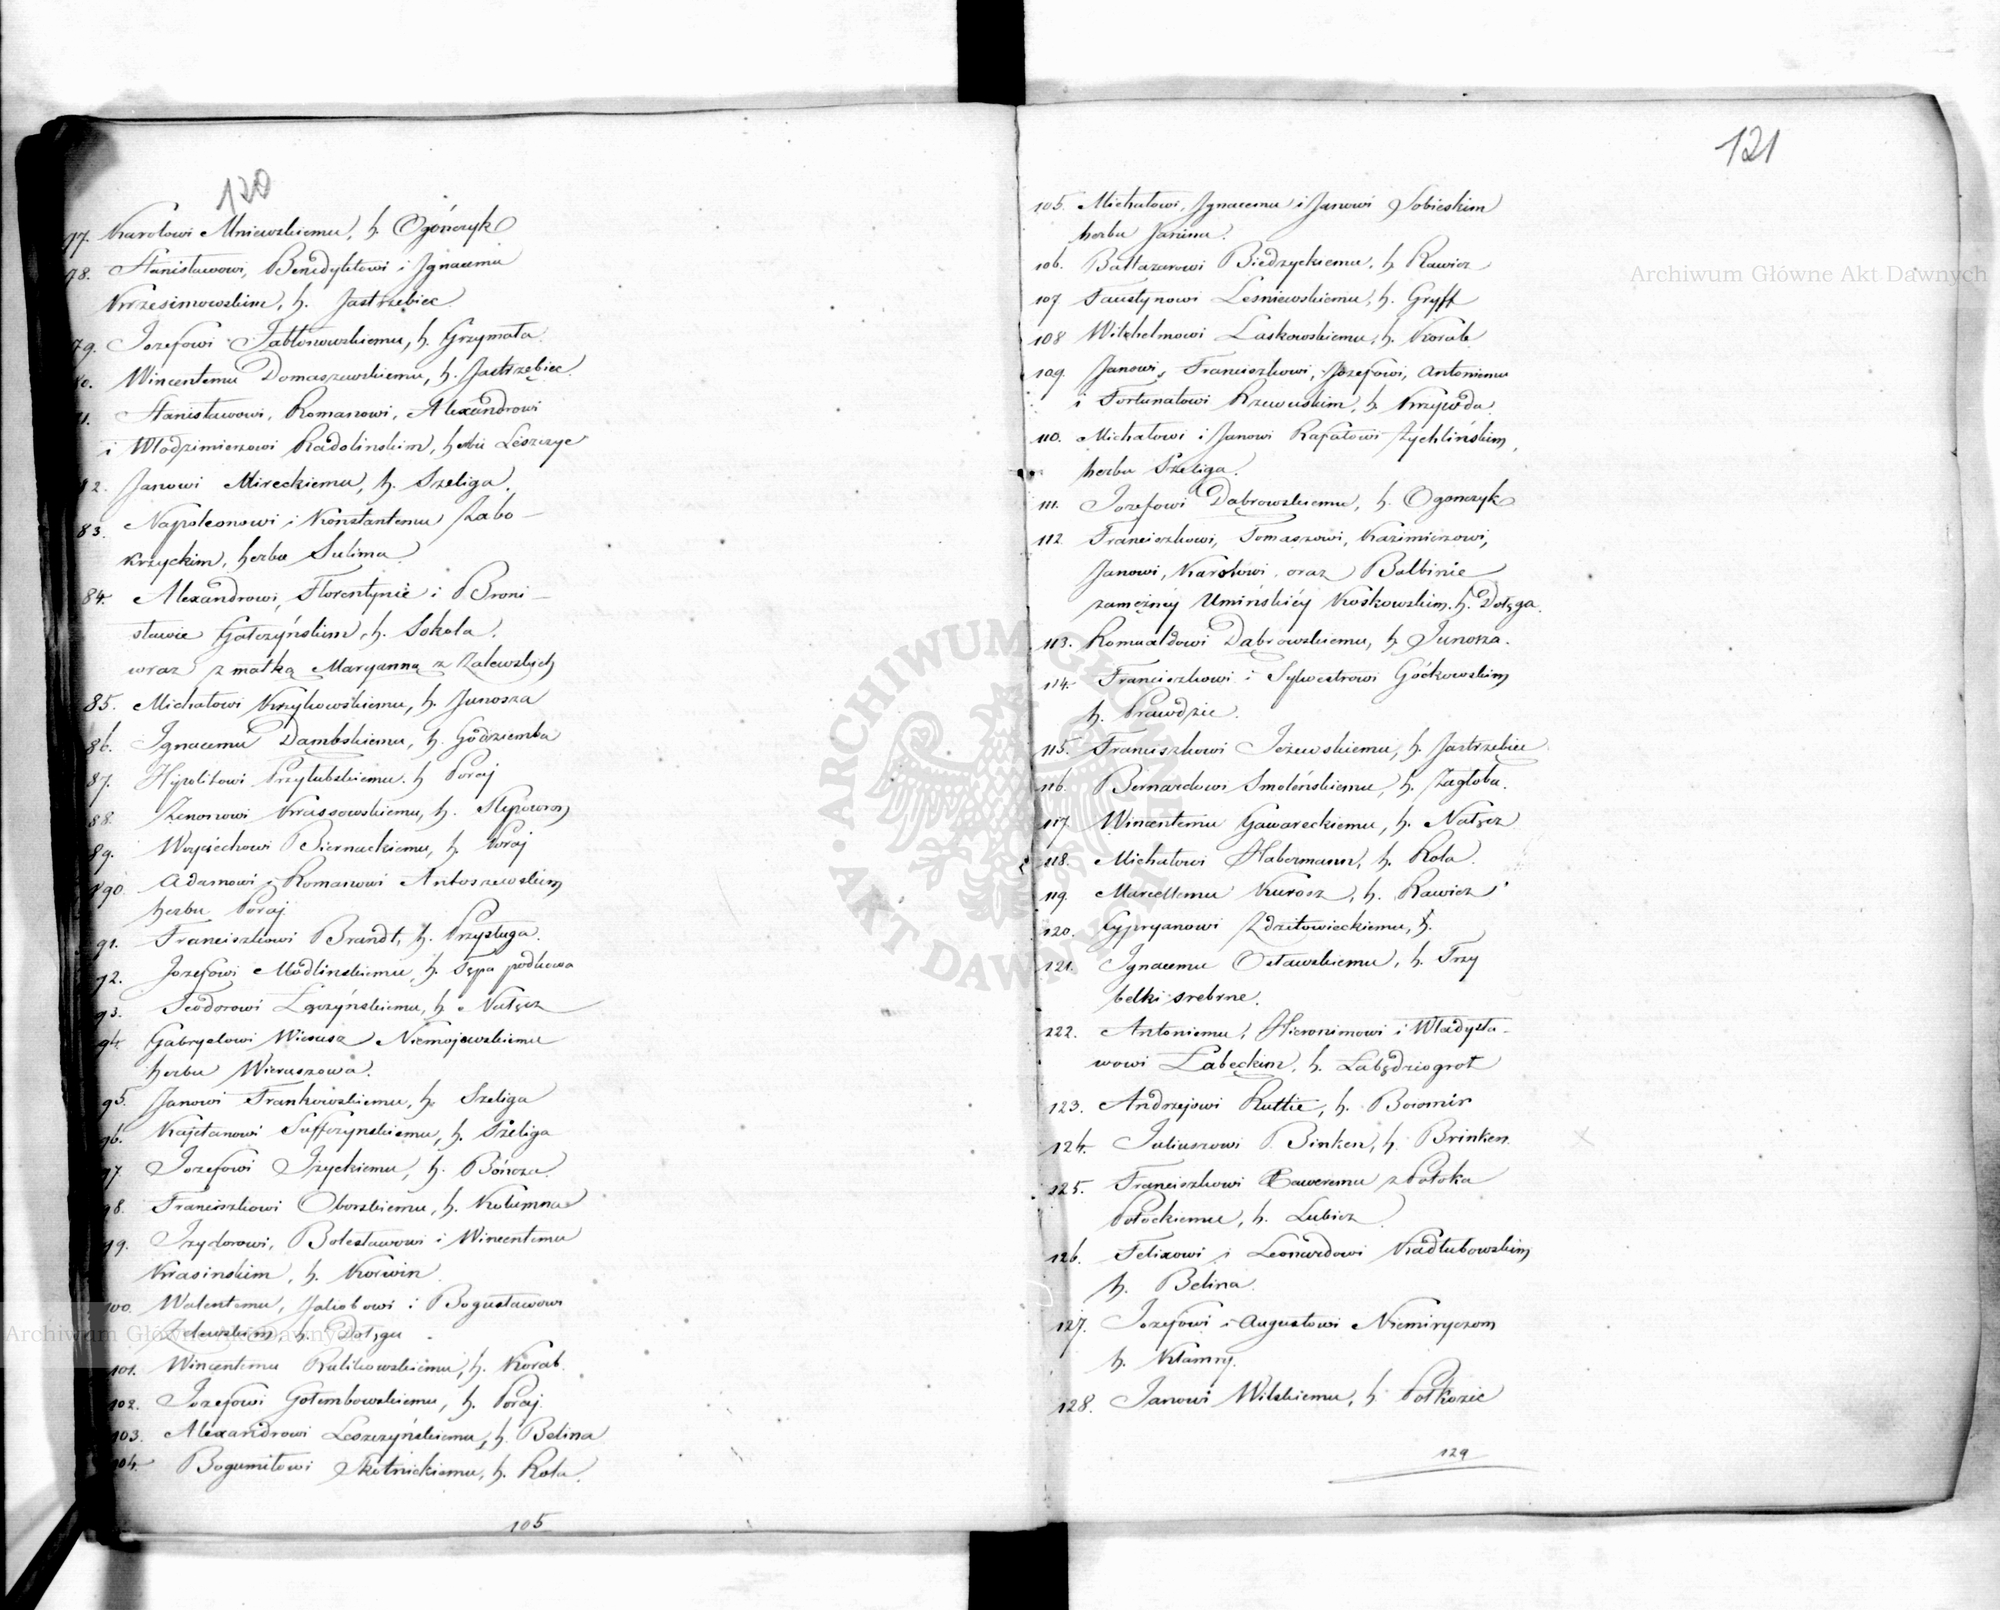 120
77. Karolowi Mniewskiemu, h. Ogończyk
78. Stanisławowi, Benedyktowi i Ignacemu
Krzesimowskim, h. Jastrzebiec
79. Jozefowi Jabłonowskiemu, h. Grzymała.
Wincentemu Domaszewskiemu, h. Jastrzębiec.
Stanisławowi, Romanowi, Alexandrowi
i Włodzimierzowi Radolinskim, herbu Leszczyc
82. Janowi Mireckiemu, h. Szeliga.
83. Napoleonowi i Konstantemu Zabo-
krzyckim, herbu Sulima
84. Alexandrowi, Florentynie i Broni-
sławie Gałczyńskim, h. Sokola.
wraz z matką Maryanną z Zalewskich
85. Michałowi Krzykowskiemu, h. Junosza
86. Ignacemu Dąmbskiemu, h. Godziemba
87. Hipolitowi Przyłubskiemu. h Poraj
88. Zenonowi Krassowskiemu, h. Slepowron
89. Woyciechowi Biernackiemu, h. Poraj
90. Adamowi i Romanowi Antoszewskim
herbu Poraj
91. Franciszkowi Brandt, h. Przysługa.
92. Jozefowi Modlinskiemu, h. Tępa podkowa
93. Teodorowi Łączyńskiemu, h. Nałęcz
94. Gabryelowi Wierusz Niemojowskiemu
herbu Wieruszowa.
95. Janowi Frankowskiemu, h. Szeliga
96. Kajetanowi Suffczynskiemu, h. Szeliga
97. Jozefowi Izyckiemu, h. Bończa
98. Franciszkowi Oborskiemu, h. Kolumna
99. Izydorowi, Bolesławowi i Wincentemu
Krasinskim, h. Korwin
100. Walentemu, Jakobowi i Bogusławowi
Zalewskim, h. Dołęga.
101. Wincentemu Kulikowskiemu, h. Korab.
102. Jozefowi Gołembowskiemu, h. Poraj.
103. Alexandrowi Leszczyńskiemu, h. Belina
104. Bogumiłowi Skotnickiemu, h. Rola.
105
121
105. Michałowi, Ignacemu i Janowi Sobieskim
herbu Janina.
106. Baltazarowi Biedrzyckiemu, h Rawicz
107 Faustynowi Lesniewskiemu, h. Gryff
108 Wilhelmowi Laskowskiemu, h. Korab
109 Janowi, Franciszkowi, Jozefowi, Antoniemu
i Fortunatowi Rzewuskim, h Krzywda
110. Michałowi i Janowi Rafałowi Zychlińskim,
herbu Szeliga.
111. Jozefowi Dąbrowskiemu, h. Ogonczyk
112 Franciszkowi, Tomaszowi, Kazimierzowi,
Janowi, Karolowi, oraz Balbinie
zamężnéy Umińskiéy Koskowskim. h. Dołęga.
113. Romualdowi Dąbrowskiemu, h Junosza.
114. Franciszkowi i Sylwestrowi Góckowskim
h. Prawdzic.
115. Franciszkowi Jeżewskiemu, h. Jastrzębiec
116. Bernardowi Smoleńskiemu, h. Zagłoba.
117. Wincentemu Gawareckiemu, h. Nałęcz
118. Michałowi Habermann, h. Rola.
119. Marcellemu Kurosz, h. Rawicz
120. Cypryanowi Zdzitowieckiemu, h.
121. Ignacemu Osławskiemu, h. Trzy
belki srebrne.
122. Antoniemu, Hieronimowi i Władysła-
wowi Łabęckim, h. Łabędziogrot
123. Andrzejowi Ruttie, h. Boiomir
124. Juliuszowi Binken, h. Brinken
125. Franciszkowi Xaweremu z Potoka
Potockiemu, h. Lubicz
126. Felixowi i Leonardowi Kadłubowskim
h. Belina.
127. Jozefowi i Augustowi Niemiryczom
h. Kłamry.
128. Janowi Wilskiemu, h. Połkozic
129
Archiwum Główne Akt Dawnych
Archiwum Główne Akt Dawnych
ARCHIWUM GŁÓWNE AKT DAWNYCH